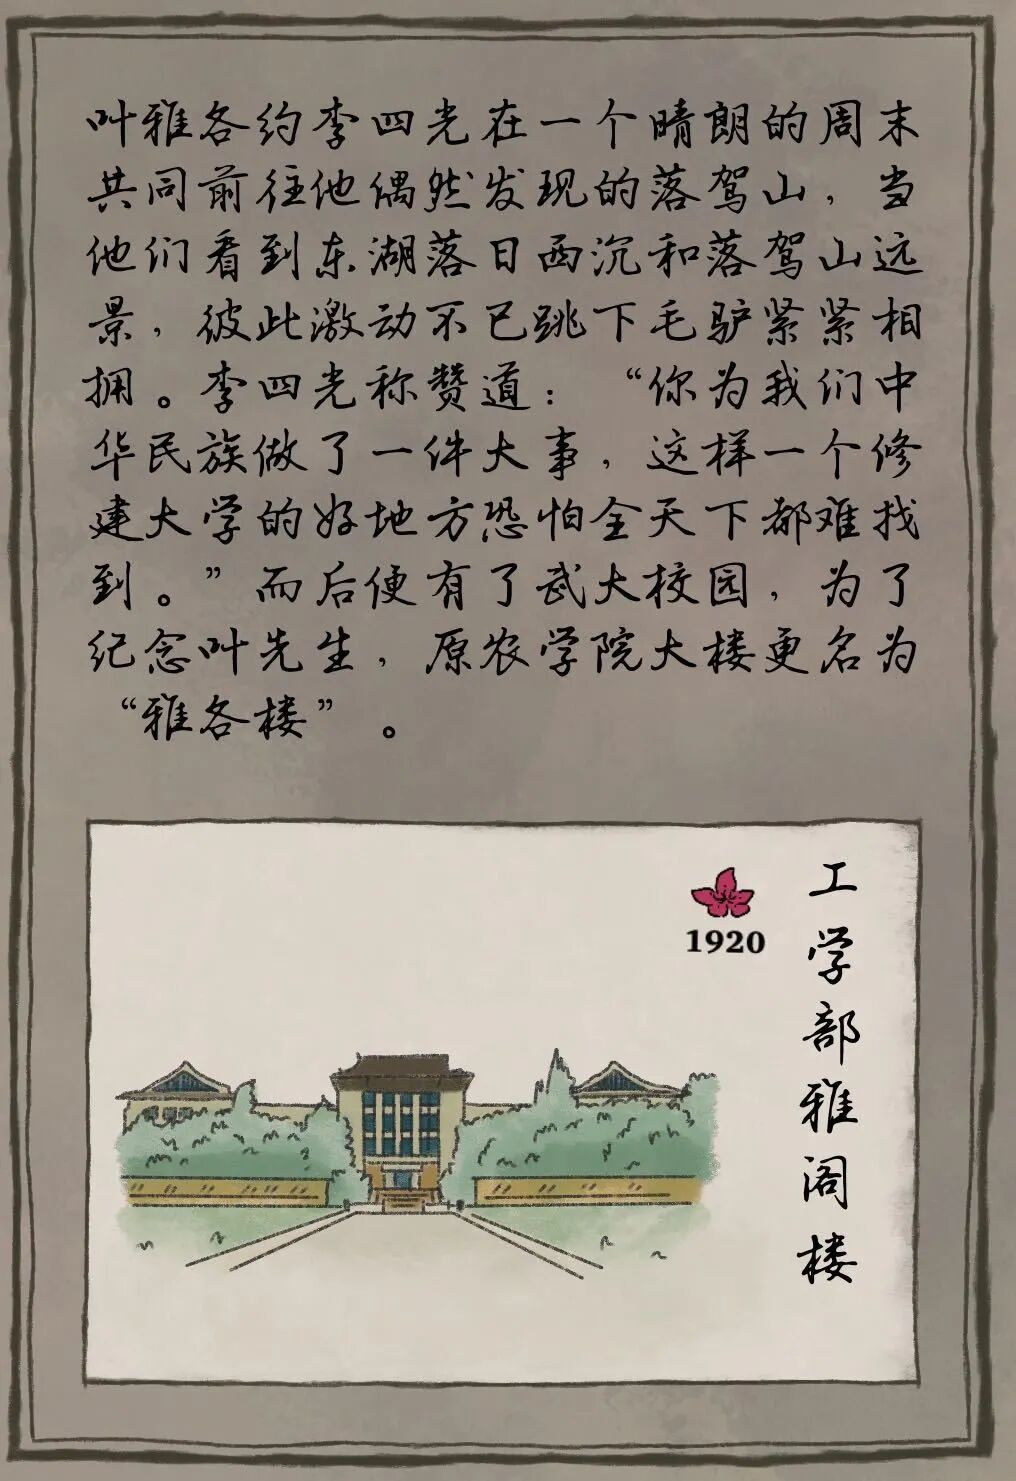 叶雅各约李四光在一个晴朗的周末
共同前往他偶然发现的落驾山，当
他们看到东湖落日西沉和落驾山远
景，彼此激动不已跳下毛驴紧紧相
拥。李四光称赞道：“你为我们中
华民族做了一件大事，这样一个修
建大学的好地方恐怕全天下都难找
到。”而后便有了武大校园，为了
纪念叶先生，原农学院大楼更名为
“雅各楼”。
1920
工学部雅阁楼